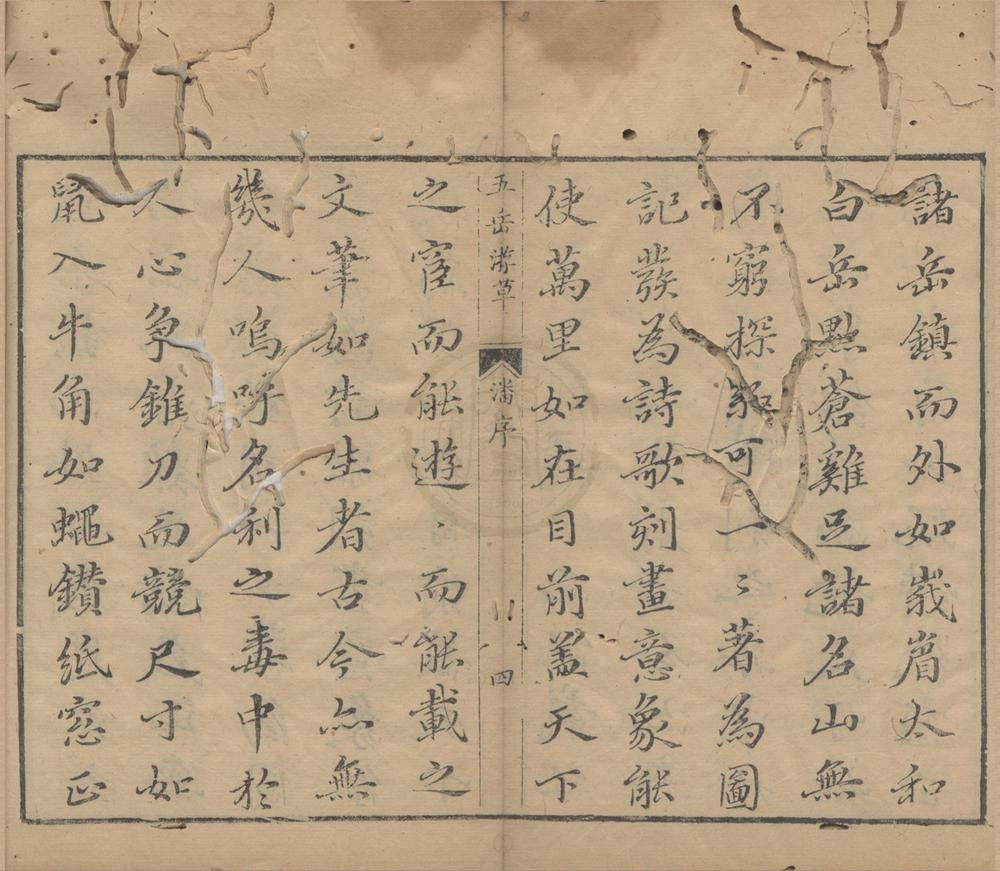 諸岳鎮而外如峩眉太和
白岳點蒼雞足諸名山無
不窮探絕可一〻著為圖
記發為詩歌刻畫意象能
使萬里如在目前盖天下
五岳游草 潘序 四
之宦而能遊、而能載之
文筆如先生者古今亦無
幾人嗚呼名利之毒中於
人心争錐刀而競尺寸如
鼠入牛角如蠅鑽紙窓正